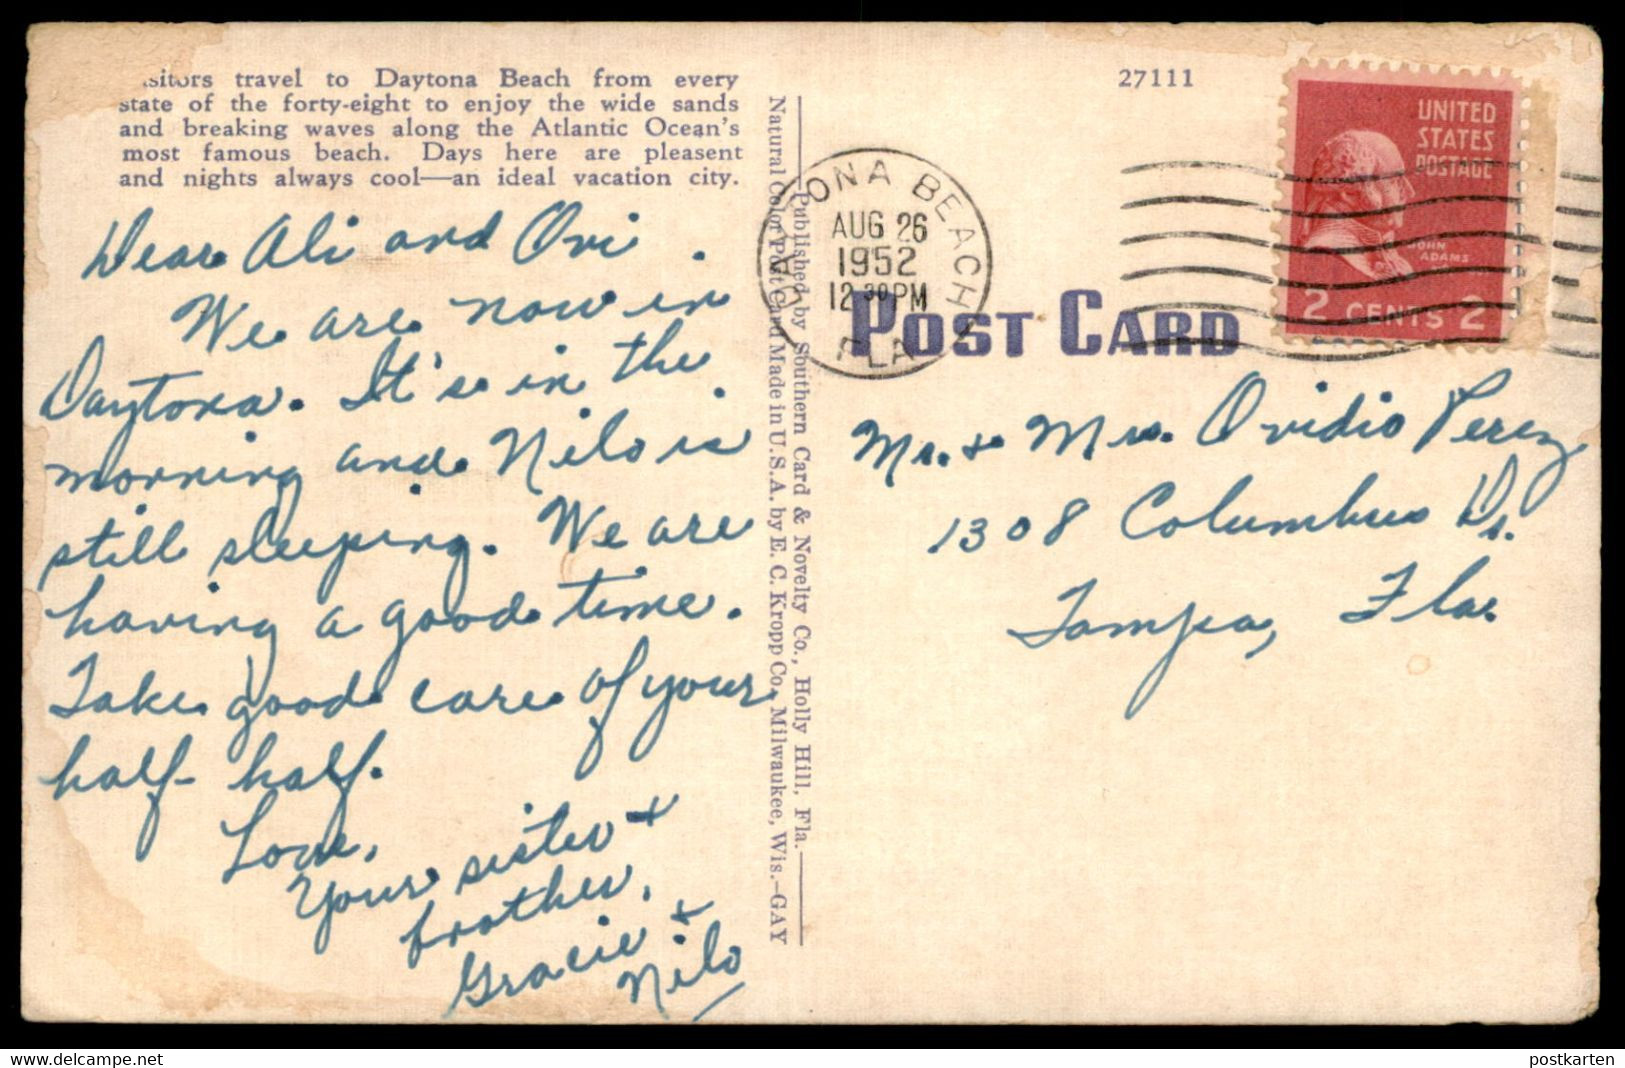 Visitors travel to Daytona Beach from every
state of the forty-eight to enjoy the wide sands
and breaking waves along the Atlantic Ocean's
most famous beach. Days here are pleasent
and nights always cool—an ideal vacation city.
27111
Dear Ali and Ovi.
We are now in
Daytona. It's in the
morning and Nilo is
still sleeping. We are
having a good time.
Take good care of your
half-half.
Love,
Your sister +
brother,
Gracie +
Nilo
Published by Southern Card & Novelty Co., Holly Hill, Fla.
Natural Color Post Card Made in U.S.A. by E. C. Kropp Co., Milwaukee, Wis.-GAY
DAYTONA BEACH
AUG 26
1952
12 30 PM
FLA
UNITED
STATES
POSTAGE
JOHN
ADAMS
2 CENTS 2
POST CARD
Mr. + Mrs. Ovidio Perez
1308 Columbus Dr.
Tampa, Fla.
www.delcampe.net
postkarten